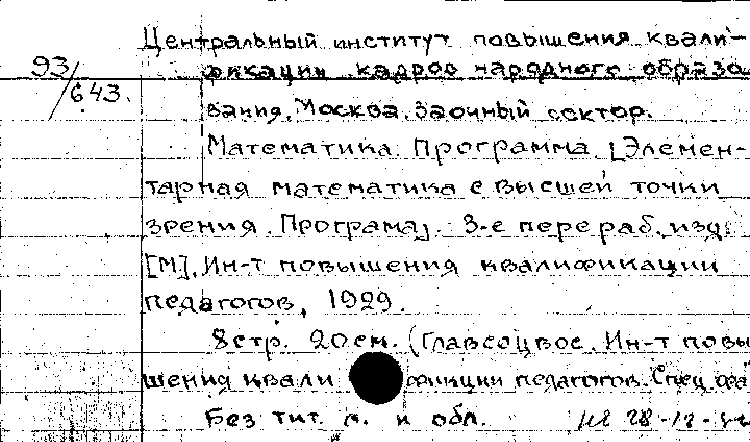 Центральный институт повышения квали-
93/643.
фикации кадров народного образо
вания. Москва. Заочный сектор.
Математика. Программа. [Элемен-
тарная математика с высшей точки
зрения. Програма]. 3-е перераб. изд.
[М]. Ин-т повышения квалификации
педагогов, 1929.
8 стр. 20 см. (Главсоцвос. Ин-т повы
шения квали фикции педагогов. Спец. фа
Без тит. л. и обл.